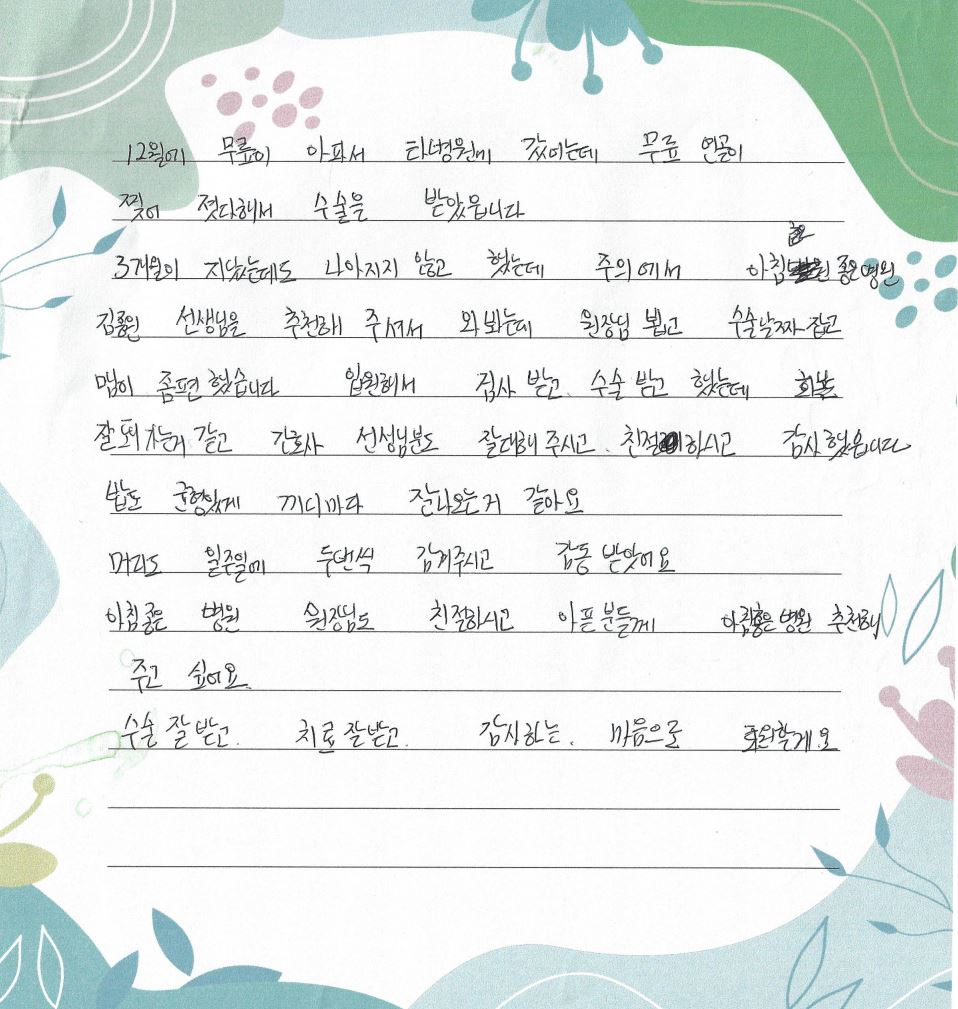 12월에 무릎이 아파서 타병원에 갔어는데 무릎 연골이
찢어 젓다해서 수술을 받았읍니다
3개월이 지났는데도 나아지지 않고 했는데 주의에서 아침 좋은병원
김종원 선생님을 추천해 주셔서 와 봤는데 원장님 뵙고 수술날짜 잡고
맘이 좀편 했습니다 입원해서 검사 받고. 수술 받고 했는데 회복도
잘 되 가는거 같고 간호사 선성님분도 잘대해 주시고. 친절하시고 감사 했읍니다
밥도 균형있게 끼디마다 잘나오는거 같아요
머리도 일주일에 두번씩 감겨주시고 감동 받앗어요
아침좋은 병원 원장님도 친절하시고 아픈 분들게 아침좋은 병원 추천해
주고 싶어요.
수술 잘 받고. 치료 잘받고. 감사하는. 마음으로 퇴원할게요